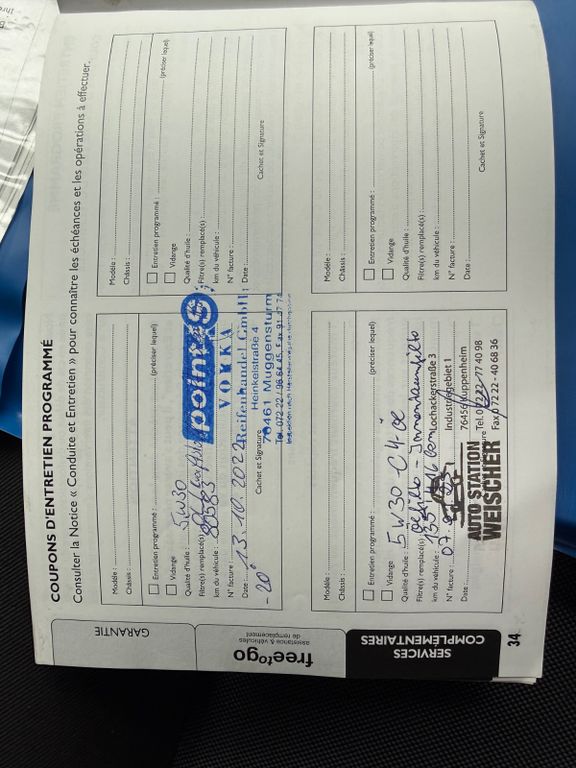 COUPONS D'ENTRETIEN PROGRAMMÉ
Consulter la Notice « Conduite et Entretien » pour connaître les échéances et les opérations à effectuer.
Modèle :
Châssis :
Entretien programmé : (préciser lequel)
Vidange
Qualité d'huile : 5W30
Filtre(s) remplacé(s) :
km du véhicule :
N° facture :
Date : 13.10.2022
-20°
Cachet et Signature
point S
VOYKA
Reifenhandel GmbH
Heinkelstraße 4
76461 Muggensturm
Modèle :
Châssis :
Entretien programmé : (préciser lequel)
Vidange
Qualité d'huile :
Filtre(s) remplacé(s) :
km du véhicule :
N° facture :
Date :
Cachet et Signature
Modèle :
Châssis :
Entretien programmé : (préciser lequel)
Vidange
Qualité d'huile : 5W30-C4
Filtre(s) remplacé(s) :
km du véhicule :
N° facture :
Date :
AUTO STATION
WEISCHER
Lochackerstraße 3
Industriegebiet 1
Kuppenheim
77 40 98
Fax 0 72 22 - 40 68 36
Modèle :
Châssis :
Entretien programmé : (préciser lequel)
Vidange
Qualité d'huile :
Filtre(s) remplacé(s) :
km du véhicule :
N° facture :
Date :
Cachet et Signature
GARANTIE
free to go
assistance & véhicules
de remplacement
SERVICES
COMPLEMENTAIRES
34